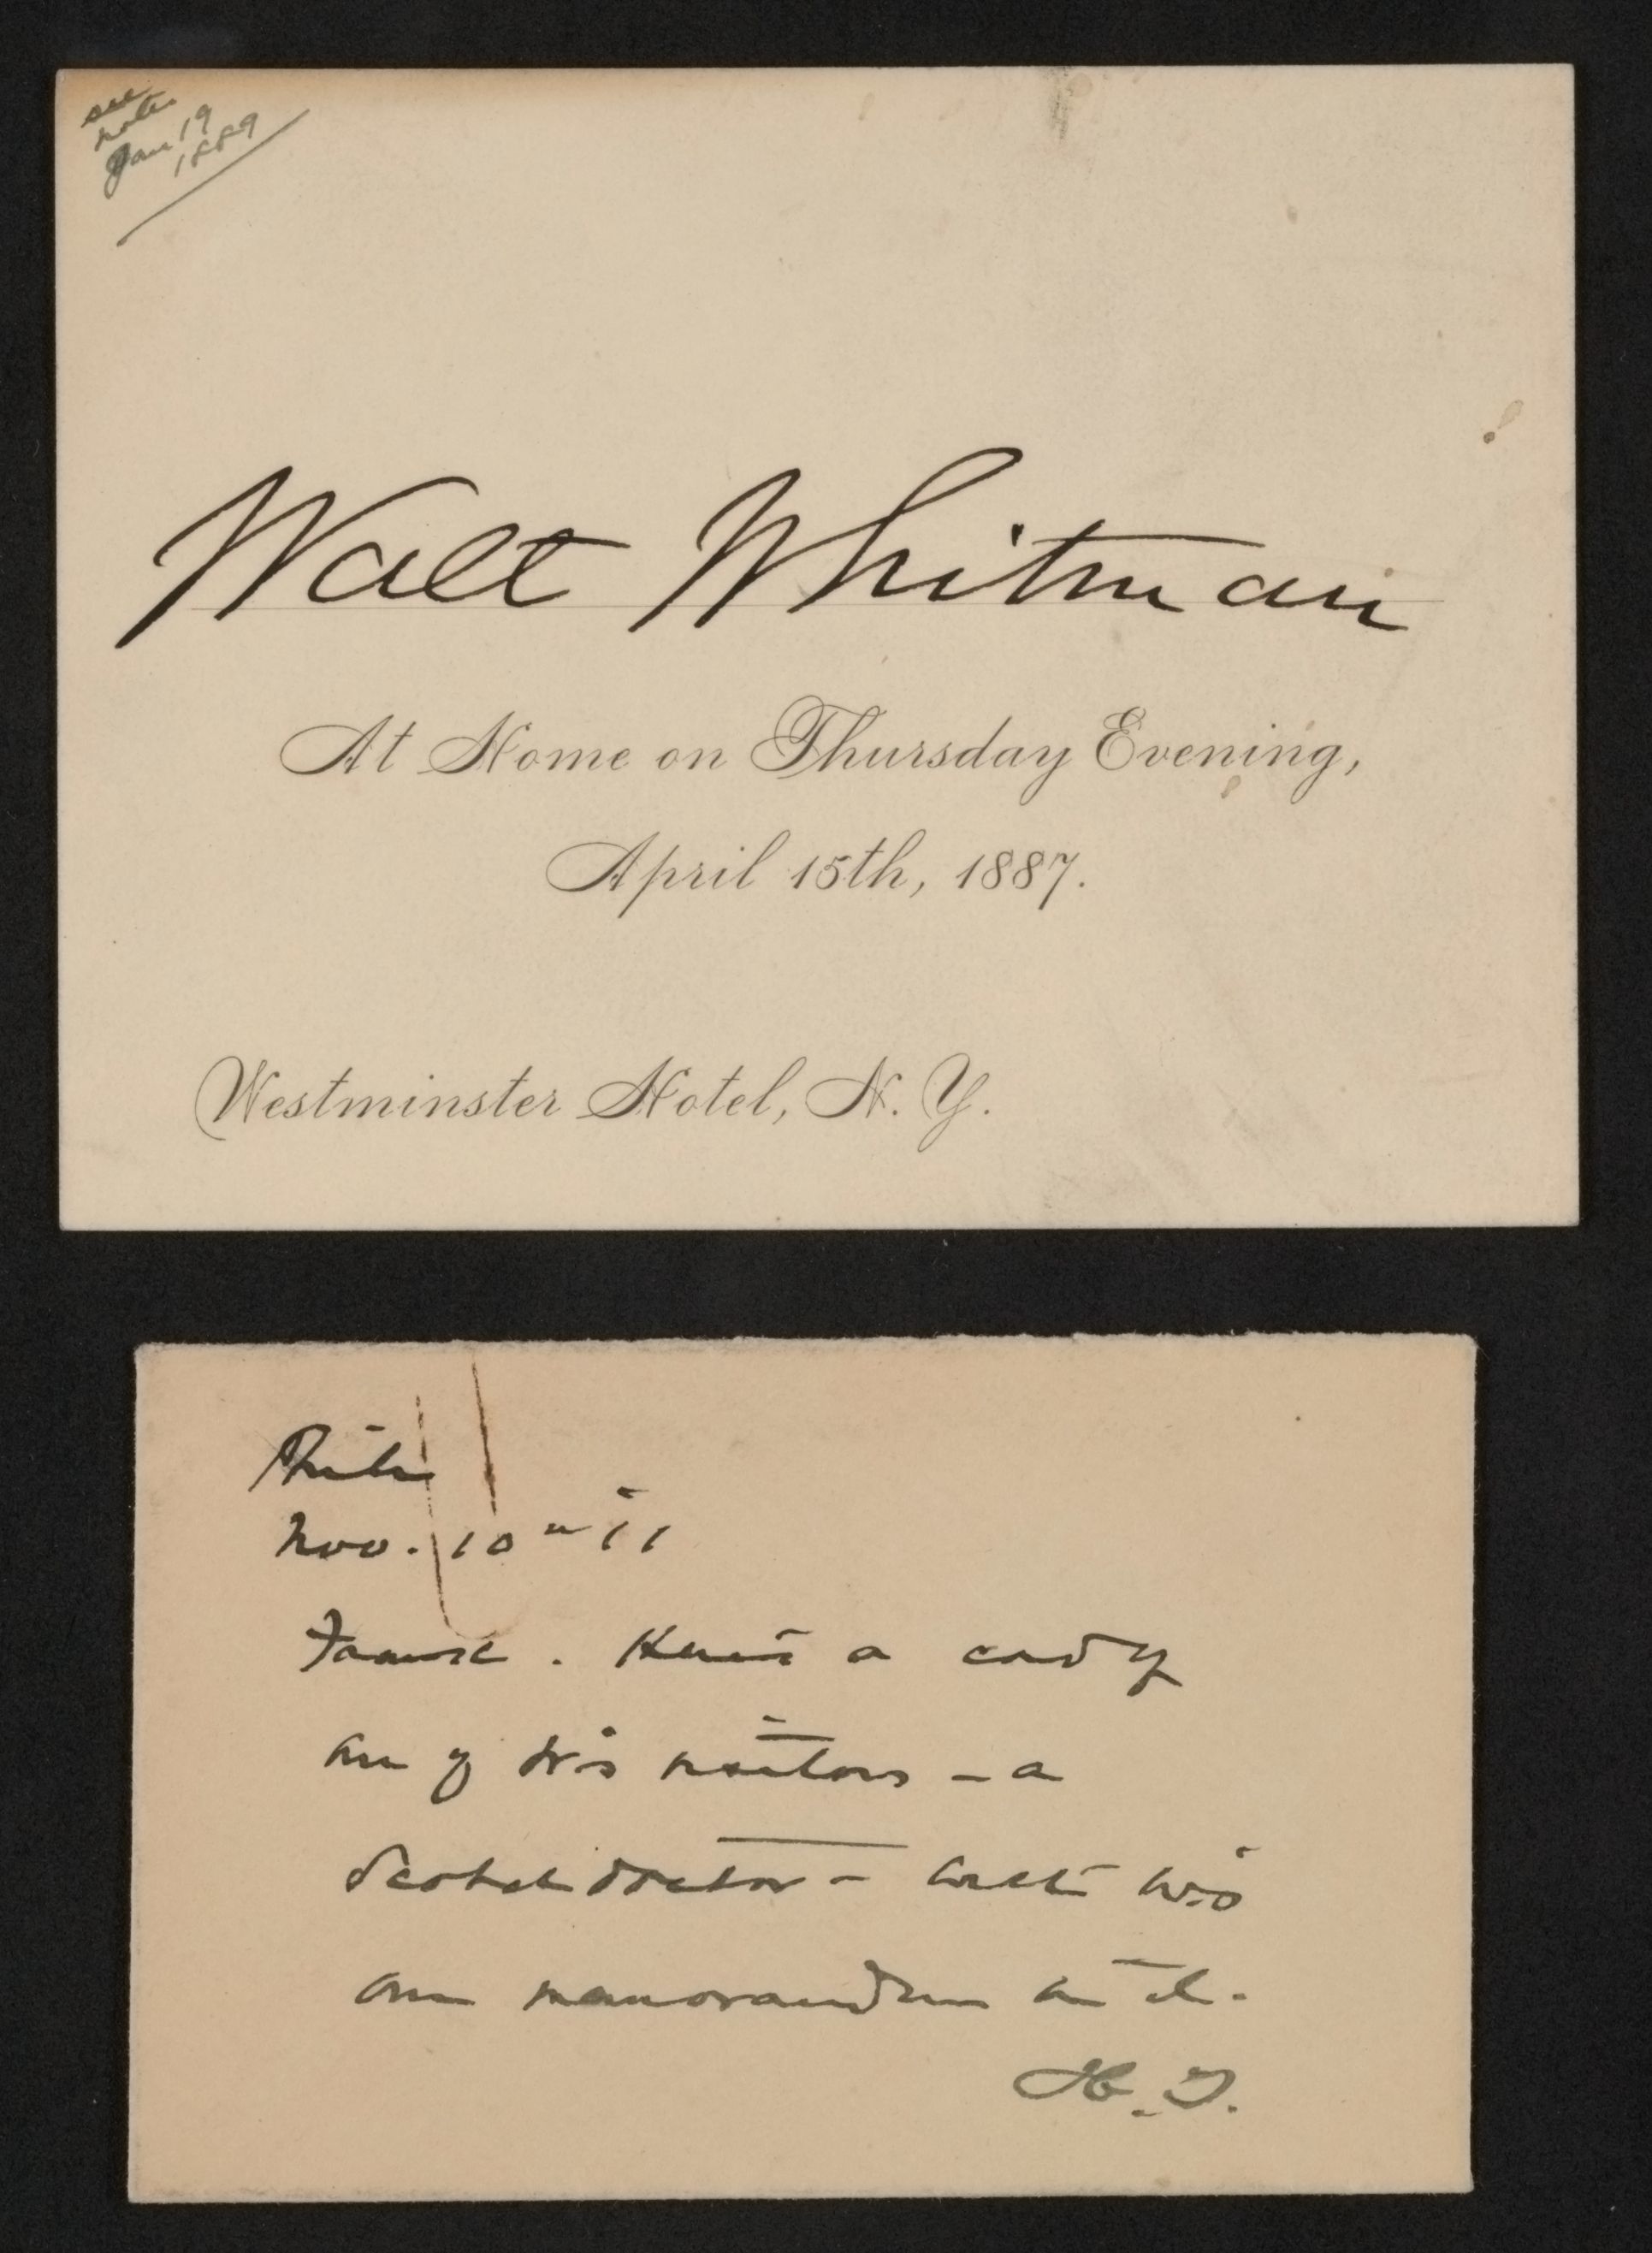 see
notes
Jan 19
1889
Walt Whitman
At Home on Thursday Evening,
April 15th, 1887.
Westminster Hotel, N. Y.
Phila
Nov. 10 11
Here's a card of
one of W's visitors – a
Scotch doctor – with W's
own memorandum on it.
H. T.